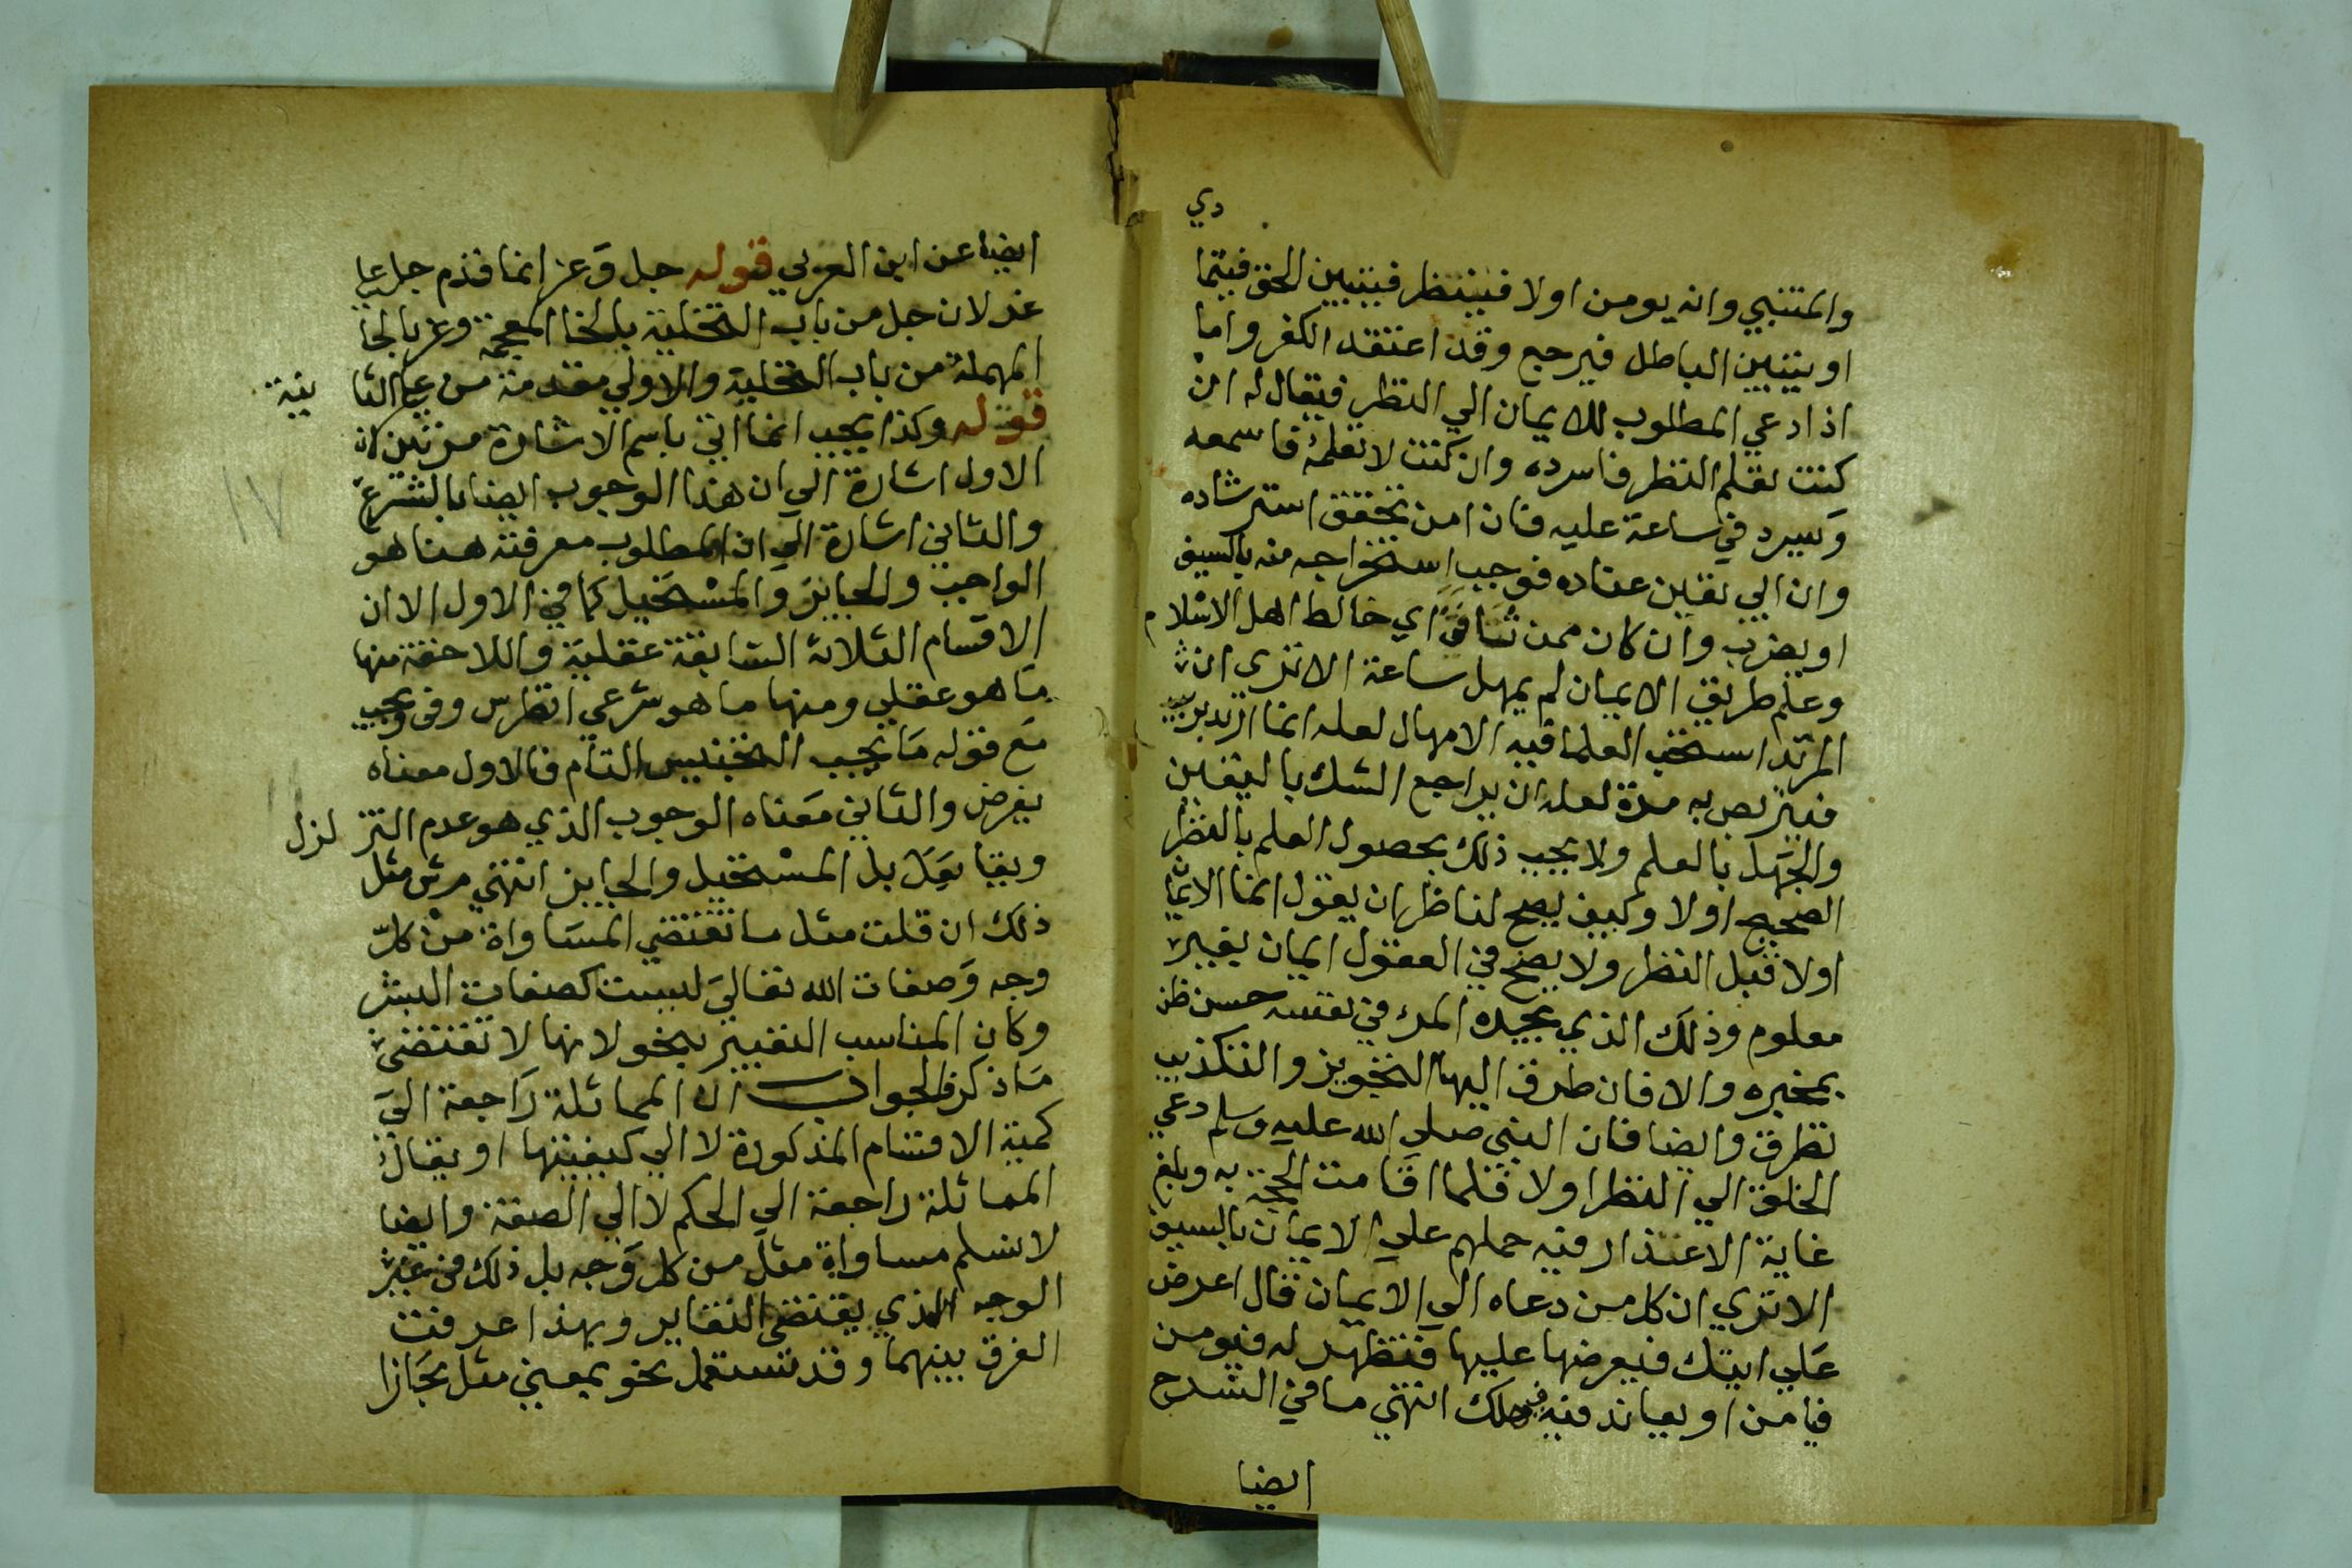 دي
والمتنبي وانه يومن اولا فينظر فيتبين الحق فيتما
او يتبين الباطل فيرجع وقد اعتقد الكفر واما
اذا دعي المطلوب للايمان الي النظر فيقال له ان
كنت تعلم النظر فاسرده وان كنت لا تعلمه فاسمعه
ويسرد في ساعة عليه فان امن تحقق استرشاده
وان ابي تقين عناده فوجب استخراجه منه بالسيف
او يضرب وان كان ممن ثنافن اي خالط اهل الاسلام
وعلم طريق الايمان لم يمهل ساعة الا تري ان
المرتد استحب العلما فيه الامهال لعله انما ارتد
فيتربص به مدة لعله ان يراجع الشك باليقين
والجهل بالعلم ولا يجب ذلك بحصول العلم بالنظر
الصحيح اولا وكيف يصح لناظر ان يقول انما الايمان
اولا قبل النظر ولا يصح في العقول ايمان بغير
معلوم وذلك الذي يجده المرء في نفسه حسن ظن
بمخبره والا فان طرق اليها التجويز والتكذيب
تطرق وايضا فان النبي صلي الله عليه وسلم دعي
الخلق الي النظر اولا فلما اقامت الحجة به وبلغ
غاية الاعتذار فيه حملهم علي الايمان بالسيف
الا تري ان كل من دعاه الي الايمان قال اعرض
علي ايتك فيعرضها عليها فتظهر له فيومن
فيامن او يعاند فيه فيهلك انتهي ما في الشرح
ايضا
ايضا عن ابن العربي قوله جل وعز انما قدم جل علي
عز لان جل من باب التخلية بالخا المعجمة وعز بالحا
المهملة من باب التحلية والاولي مقدمة علي الثا
نية
قوله وكذا يجب انما اتي باسم الاشارة مرتين لان
الاول اشارة الي ان هذا الوجوب ايضا بالشرع
والثاني اشارة الي ان المطلوب معرفته هنا هو
الواجب والجايز والمستحيل كما في الاول الا ان
الاقسام الثلاثة السابقة عقلية واللاحقة منها
ما هو عقلي ومنها ما هو شرعي انظر س وفي يجب
مع قوله ما يجب التجنيس التام فالاول معناه
يفرض والثاني معناه الوجوب الذي هو عدم التز
لزل
ويقابل بل المستحيل والجايز انتهي مثل
ذلك ان قلت مثل ما تقتضي المساواة من كل
وجه وصفات الله تعالي ليست كصفات البشر
وكان المناسب التعبير بنحو لانها لا تقتضي
ما ذكر فالجواب ان المماثلة راجعة الي
كمية الاقسام المذكورة لا الي كيفيتها او يقال
المماثلة راجعة الي الحكم لا الي الصفة وايضا
لا نسلم مساواة مثل من كل وجه بل ذلك في غير
الوجه الذي يقتضي التغاير وبهذا عرفت
الفرق بينهما وقد تستعمل نحو بمعني مثل مجازا
١٧